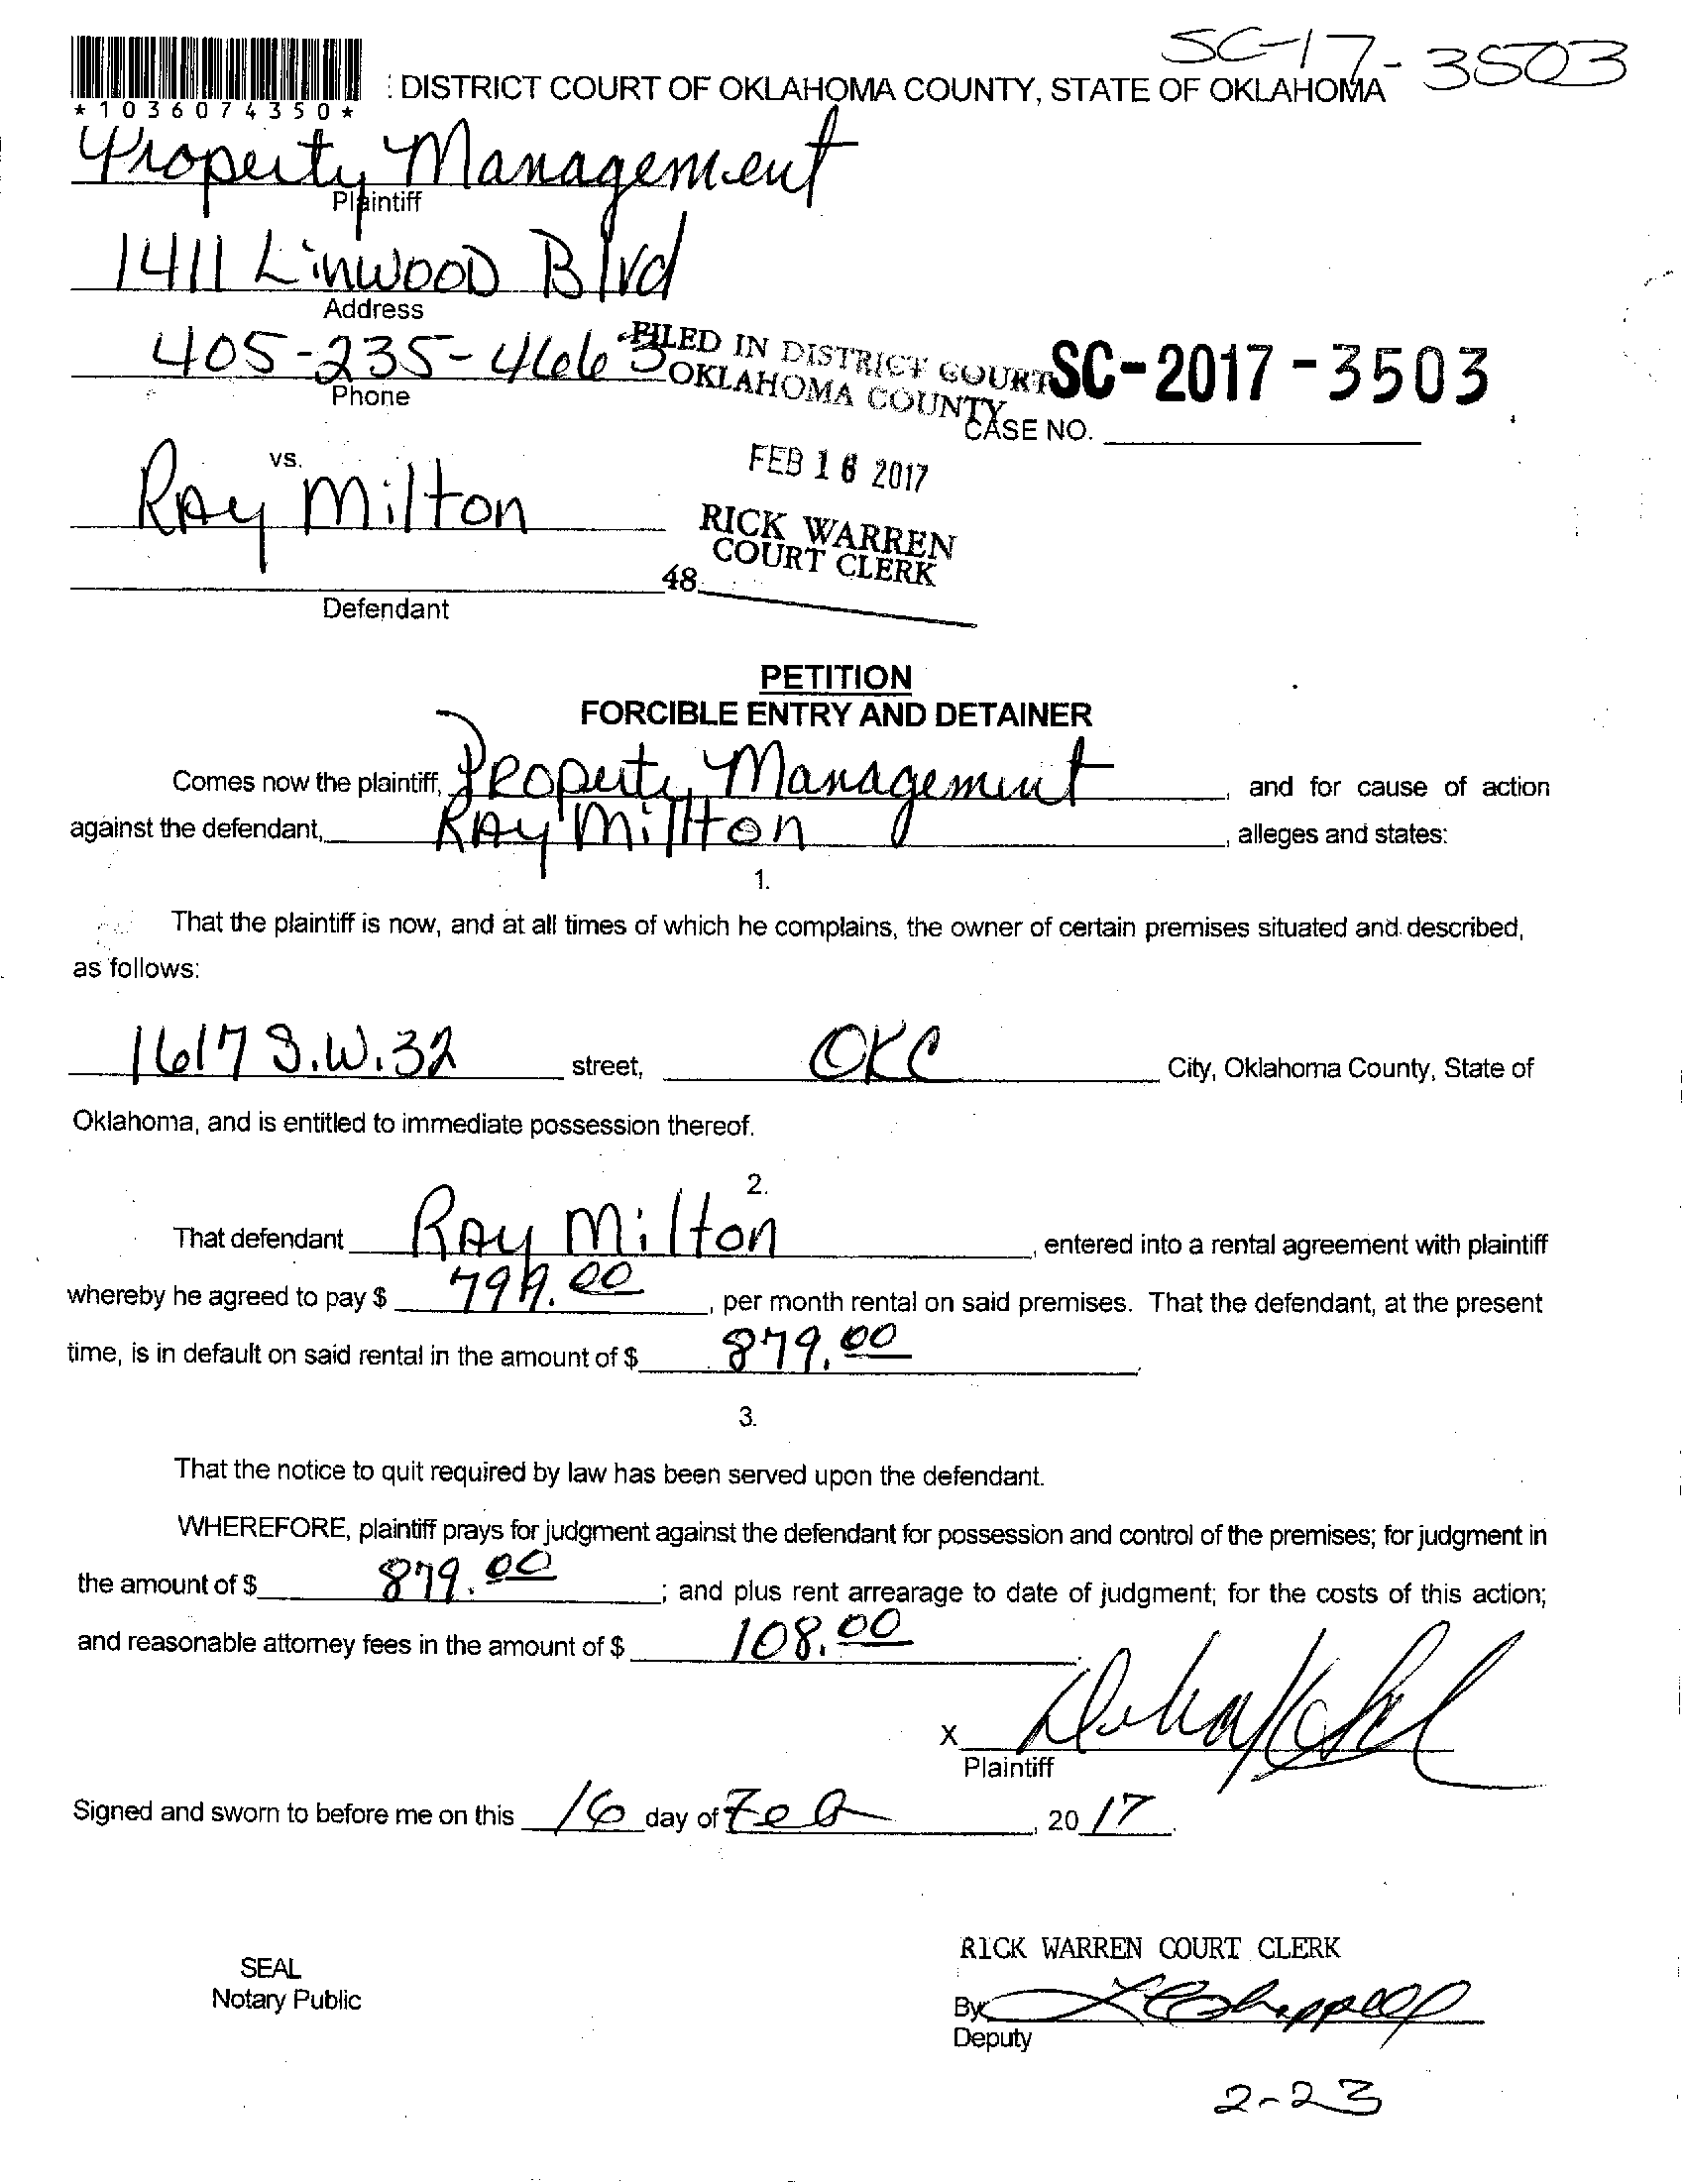 SC-17-3503
*1036074350*
: DISTRICT COURT OF OKLAHOMA COUNTY, STATE OF OKLAHOMA
Property Management
Plaintiff
1411 Linwood Blvd
Address
405-235-4663
Phone
FILED IN DISTRICT COURT
OKLAHOMA COUNTY
SC-2017-3503
CASE NO.
FEB 16 2017
vs.
Ray Milton
RICK WARREN
COURT CLERK
48
Defendant
PETITION
FORCIBLE ENTRY AND DETAINER
Comes now the plaintiff, Property Management, and for cause of action
against the defendant, Ray Millton, alleges and states:
1.
That the plaintiff is now, and at all times of which he complains, the owner of certain premises situated and described,
as follows:
1617 S.W. 32 street, OKC City, Oklahoma County, State of
Oklahoma, and is entitled to immediate possession thereof.
2.
That defendant Ray Milton, entered into a rental agreement with plaintiff
whereby he agreed to pay $ 799.00, per month rental on said premises. That the defendant, at the present
time, is in default on said rental in the amount of $ 879.00.
3.
That the notice to quit required by law has been served upon the defendant.
WHEREFORE, plaintiff prays for judgment against the defendant for possession and control of the premises; for judgment in
the amount of $ 879.00; and plus rent arrearage to date of judgment; for the costs of this action;
and reasonable attorney fees in the amount of $ 108.00.
X
Plaintiff
Signed and sworn to before me on this 16 day of Feb, 20 17.
RICK WARREN COURT CLERK
SEAL
Notary Public
By
Deputy
2-23